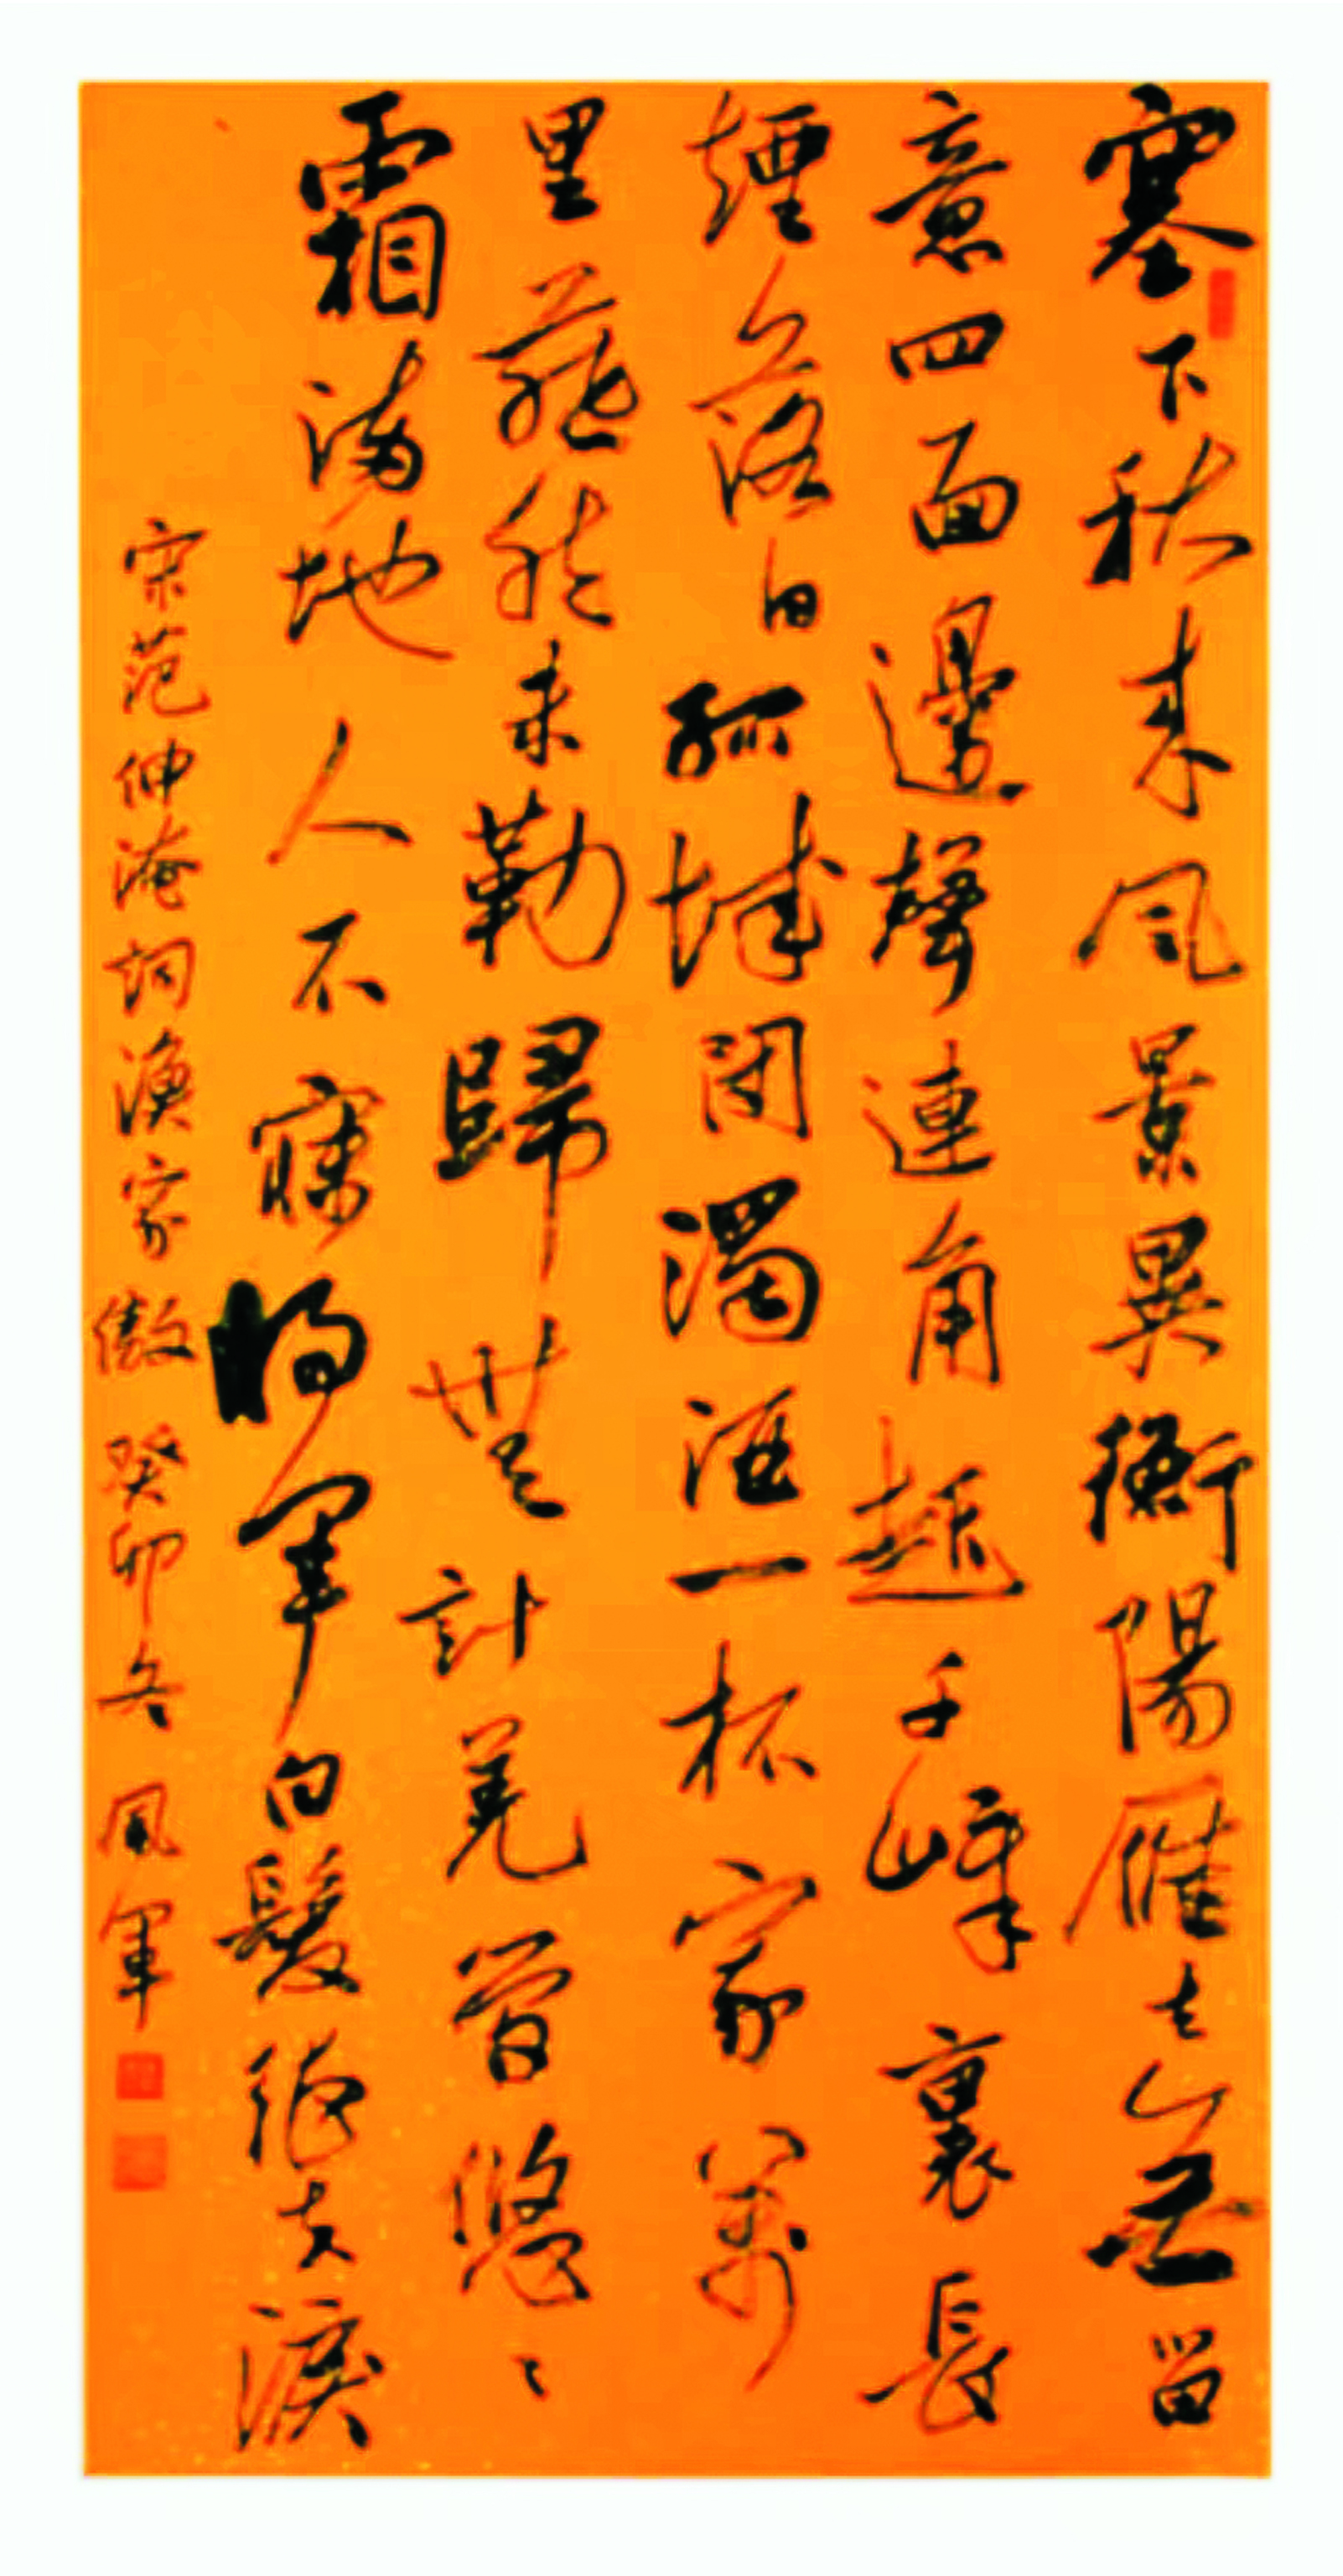 塞下秋来風景異衡陽雁去無留
意四面邊聲連角起千峰裏長
煙落日孤城閉濁酒一杯家萬
里燕然未勒歸無計羌管悠〻
霜滿地人不寐將軍白髮征夫淚
宋范仲淹詞漁家傲 癸卯冬 風軍